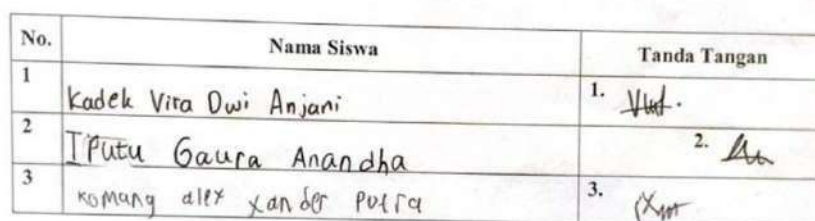 No. Nama Siswa Tanda Tangan
1 Kadek Vira Dwi Anjani 1.
2 I Putu Gaura Anandha 2.
3 komang alex xander putra 3.